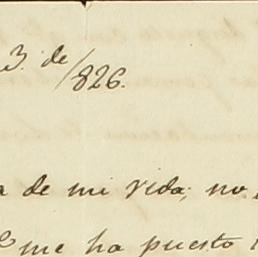 3. de /826.
a de mi vida; no
me ha puesto